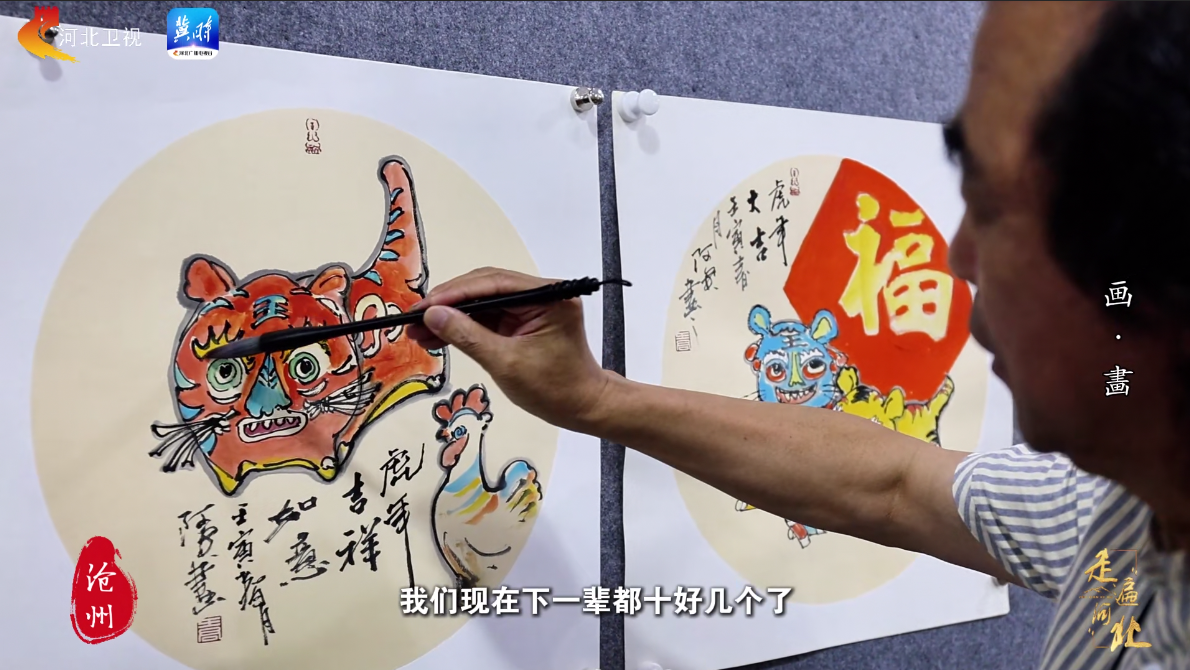 河北卫视
冀时
王
虎年
吉祥
如意
壬寅春月
虎年
大吉
壬寅春
月
福
王
画·畫
沧州
我们现在下一辈都十好几个了
走遍河北